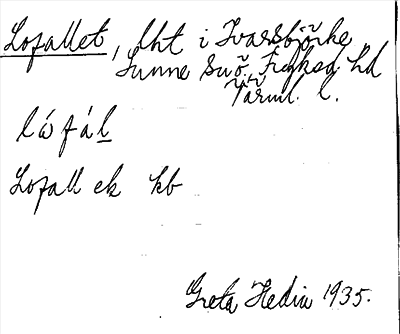 Lofallet, lht i Ivarsbjörke
Sunne sn, Fryksd. hd
Värml. l.
lófál
Lofall ek kb
Greta Hedin 1935.